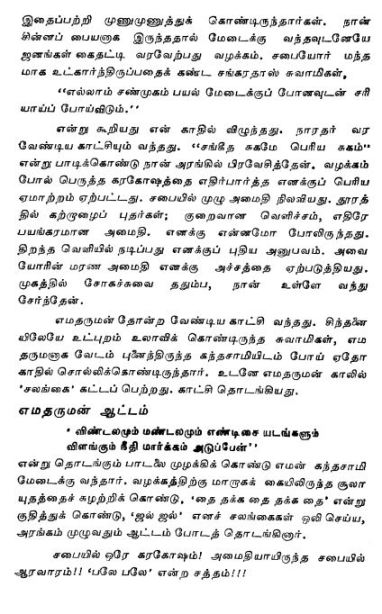 இதைப்பற்றி முணுமுணுத்துக் கொண்டிருந்தார்கள். நான்
சின்னப் பையனாக இருந்ததால் மேடைக்கு வந்தவுடனேயே
ஜனங்கள் கைதட்டி வரவேற்பது வழக்கம். சபையோர் மந்த
மாக உட்கார்ந்திருப்பதைக் கண்ட சங்கரதாஸ் சுவாமிகள்,
“எல்லாம் சண்முகம் பயல் மேடைக்குப் போனவுடன் சரி
யாய்ப் போய்விடும்.”
என்று கூறியது என் காதில் விழுந்தது. நாரதர் வர
வேண்டிய காட்சியும் வந்தது. “சங்கீத சுகமே பெரிய சுகம்”
என்று பாடிக்கொண்டு நான் அரங்கில் பிரவேசித்தேன். வழக்கம்
போல் பெருத்த கரகோஷத்தை எதிர்பார்த்த எனக்குப் பெரிய
ஏமாற்றம் ஏற்பட்டது. சபையில் முழு அமைதி நிலவியது. தூரத்
தில் கற்றாழைப் புதர்கள்; குறைவான வெளிச்சம், எதிரே
பயங்கரமான அமைதி. எனக்கு என்னமோ போலிருந்தது.
திறந்த வெளியில் நடிப்பது எனக்குப் புதிய அனுபவம். அவை
யோரின் மரண அமைதி எனக்கு அச்சத்தை ஏற்படுத்தியது.
முகத்தில் சோகச்சுவை ததும்ப, நான் உள்ளே வந்து
சேர்ந்தேன்.
எமதருமன் தோன்ற வேண்டிய காட்சி வந்தது. சிந்தனை
யிலேயே உட்புறம் உலாவிக் கொண்டிருந்த சுவாமிகள், எம
தருமனாக வேடம் புனைந்திருந்த கந்தசாமியிடம் போய் ஏதோ
காதில் சொல்லிக்கொண்டிருந்தார். உடனே எமதருமன் காலில்
‘சலங்கை’ கட்டப் பெற்றது. காட்சி தொடங்கியது.
எமதருமன் ஆட்டம்
‘ விண்டலமும் மண்டலமும் எண்டிசை யடங்களும்
விளங்கும் நீதி மார்க்கம் அடுப்பேன்’’
என்று தொடங்கும் பாடலை முழக்கிக் கொண்டு எமன் கந்தசாமி
மேடைக்கு வந்தார். வழக்கத்திற்கு மாறாகக் கையிலிருந்த சூலா
யுதத்தைச் சுழற்றிக் கொண்டு, ‘தை தக்க தை தக்க தை’ என்று
குதித்துக் கொண்டு, ‘ஜல் ஜல்’ எனச் சலங்கைகள் ஒலி செய்ய,
அரங்கம் முழுவதும் ஆட்டம் போடத் தொடங்கினார்.
சபையில் ஒரே கரகோஷம்! அமைதியாயிருந்த சபையில்
ஆரவாரம்!! ‘பலே பலே’ என்ற சத்தம்!!!